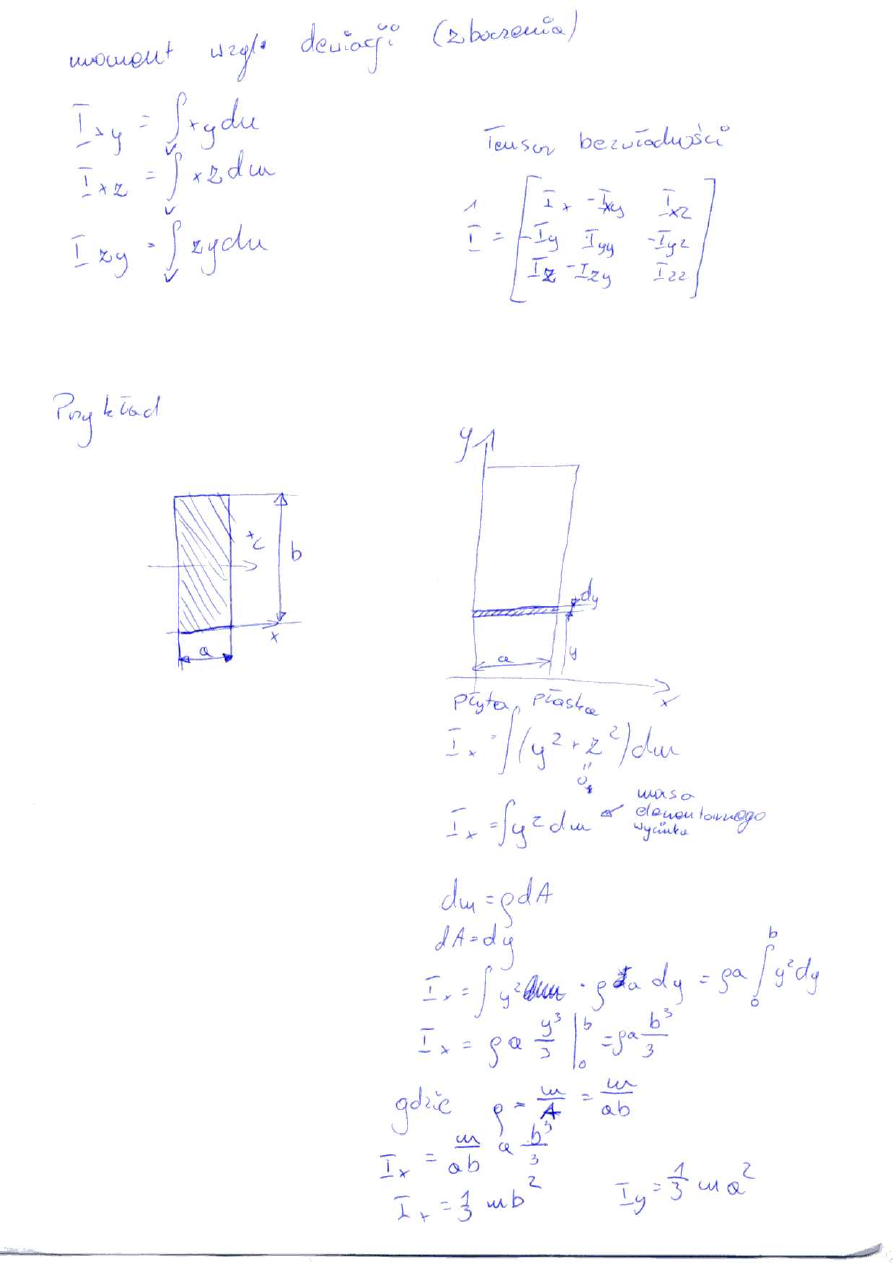 moment wzgl. dewiacji (zboczenia)
I_xy = ∫_V xydm
I_xz = ∫_V xzdm
I_zy = ∫_V zydm
Tensor bezwładności
Î = [ I_x -I_xy I_xz
-I_y I_yy -I_yz
I_z -I_zy I_zz ]
Przykład
x_c
b
x
a
y
dy
y
a
x
płyta płaska
I_x = ∫(y² + z²)dm
= 0
I_x = ∫y²dm masa elementarnego wycinka
dm = ρdA
dA = dy
I_x = ∫ y² · ρ a dy = ρa ∫_0^b y²dy
I_x = ρa y³/3 |_0^b = ρa b³/3
gdzie ρ = m/A = m/ab
I_x = m/ab a b³/3
I_x = 1/3 mb²
I_y = 1/3 ma²